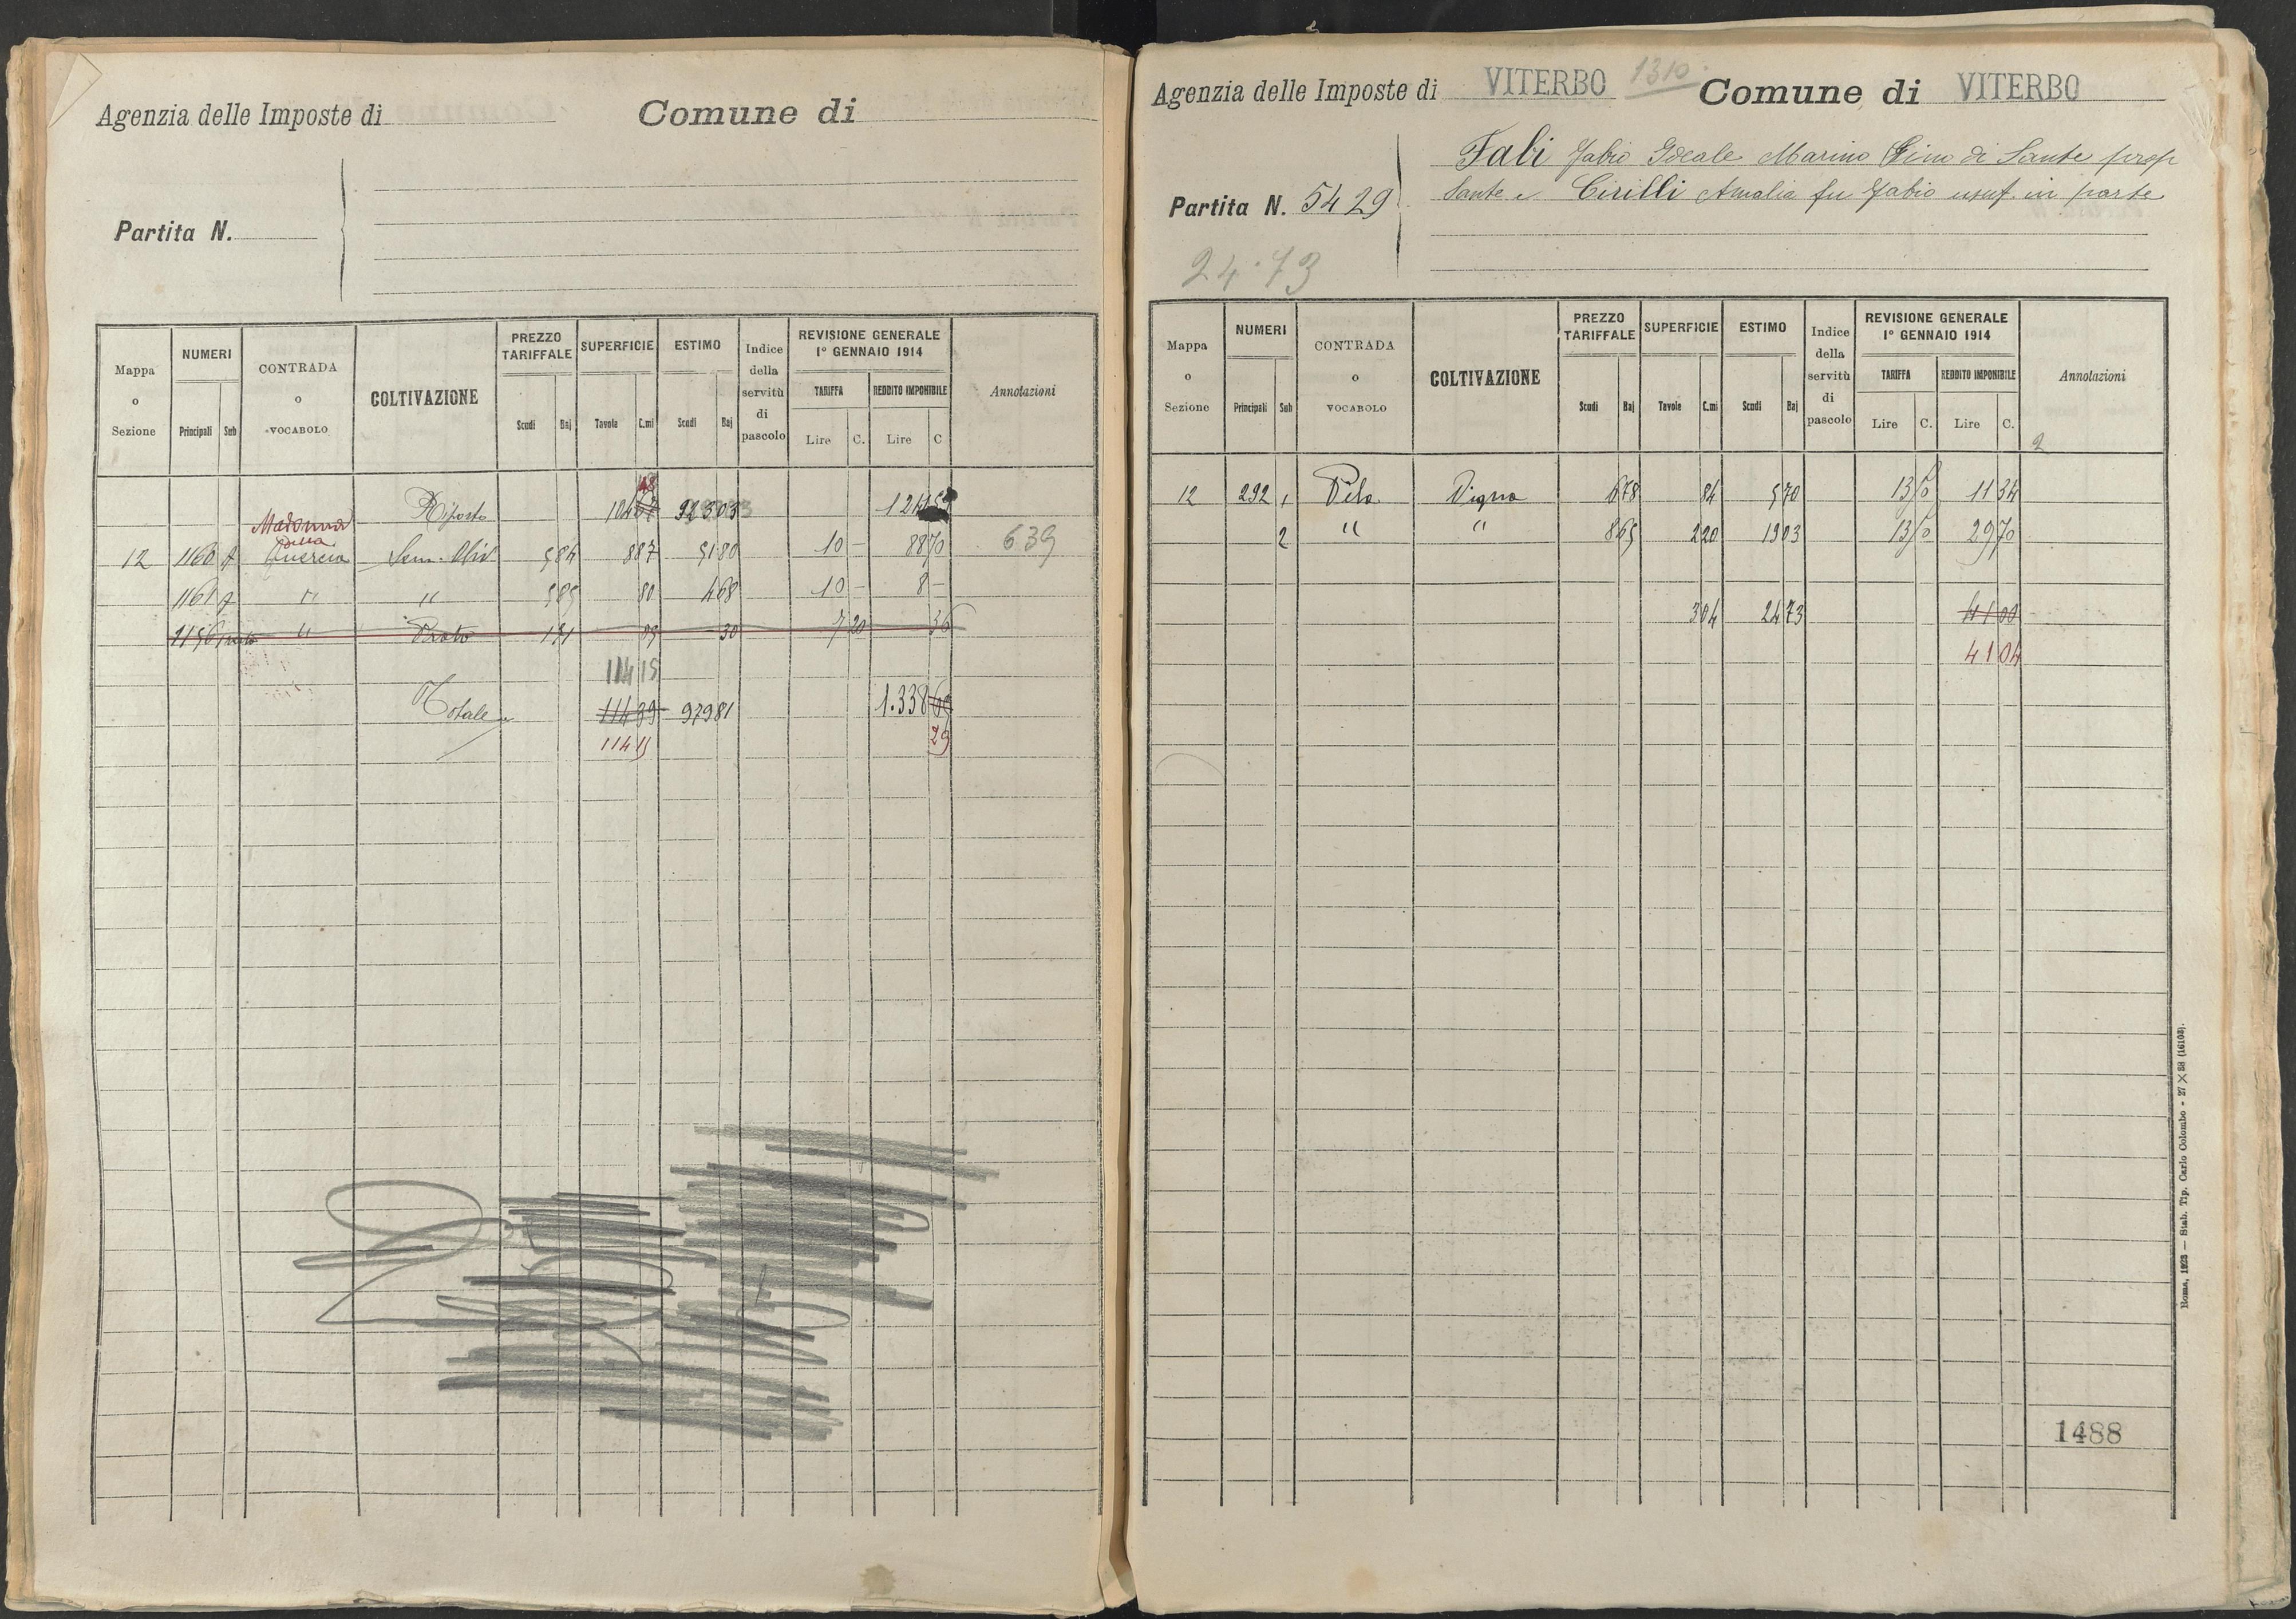 Agenzia delle Imposte di
Comune di
Partita N.
Mappa o Sezione
NUMERI
Principali Sub
CONTRADA o VOCABOLO
COLTIVAZIONE
PREZZO TARIFFALE
Scudi Baj
SUPERFICIE
Tavole C.mi
ESTIMO
Scudi Baj
Indice della servitù di pascolo
REVISIONE GENERALE
1° GENNAIO 1914
TARIFFA
Lire C.
REDDITO IMPONIBILE
Lire C
Annotazioni
48
Riporto 104 923 03 1241
Madonna della
12 1160 Quercia Sem. Oliv 5 84 8 87 51 80 10 - 88 70 639
1161 " " 5 85 80 4 68 10 - 8 -
1156 " Prato 1 51 03 30 7 20 36
114 15
Totale 114 39 979 81 1.338 60
114 15 29
Agenzia delle Imposte di VITERBO 1310
Comune di VITERBO
Partita N. 5429
Fabi Fabio Ideale Marino Gino di Sante prop
Sante e Cirilli Amalia fu Fabio usuf. in parte
24.73
Mappa o Sezione
NUMERI
Principali Sub
CONTRADA o VOCABOLO
COLTIVAZIONE
PREZZO TARIFFALE
Scudi Baj
SUPERFICIE
Tavole C.mi
ESTIMO
Scudi Baj
Indice della servitù di pascolo
REVISIONE GENERALE
1° GENNAIO 1914
TARIFFA
Lire C.
REDDITO IMPONIBILE
Lire C.
Annotazioni
2
12 292 1 Pila Vigna 6 78 84 5 70 13 50 11 34
2 " " 8 65 2 20 19 03 13 50 29 70
3 04 24 73 41 00
41 04
1488
Roma, 1923 — Stab. Tip. Carlo Colombo - 27 × 38 (16103).